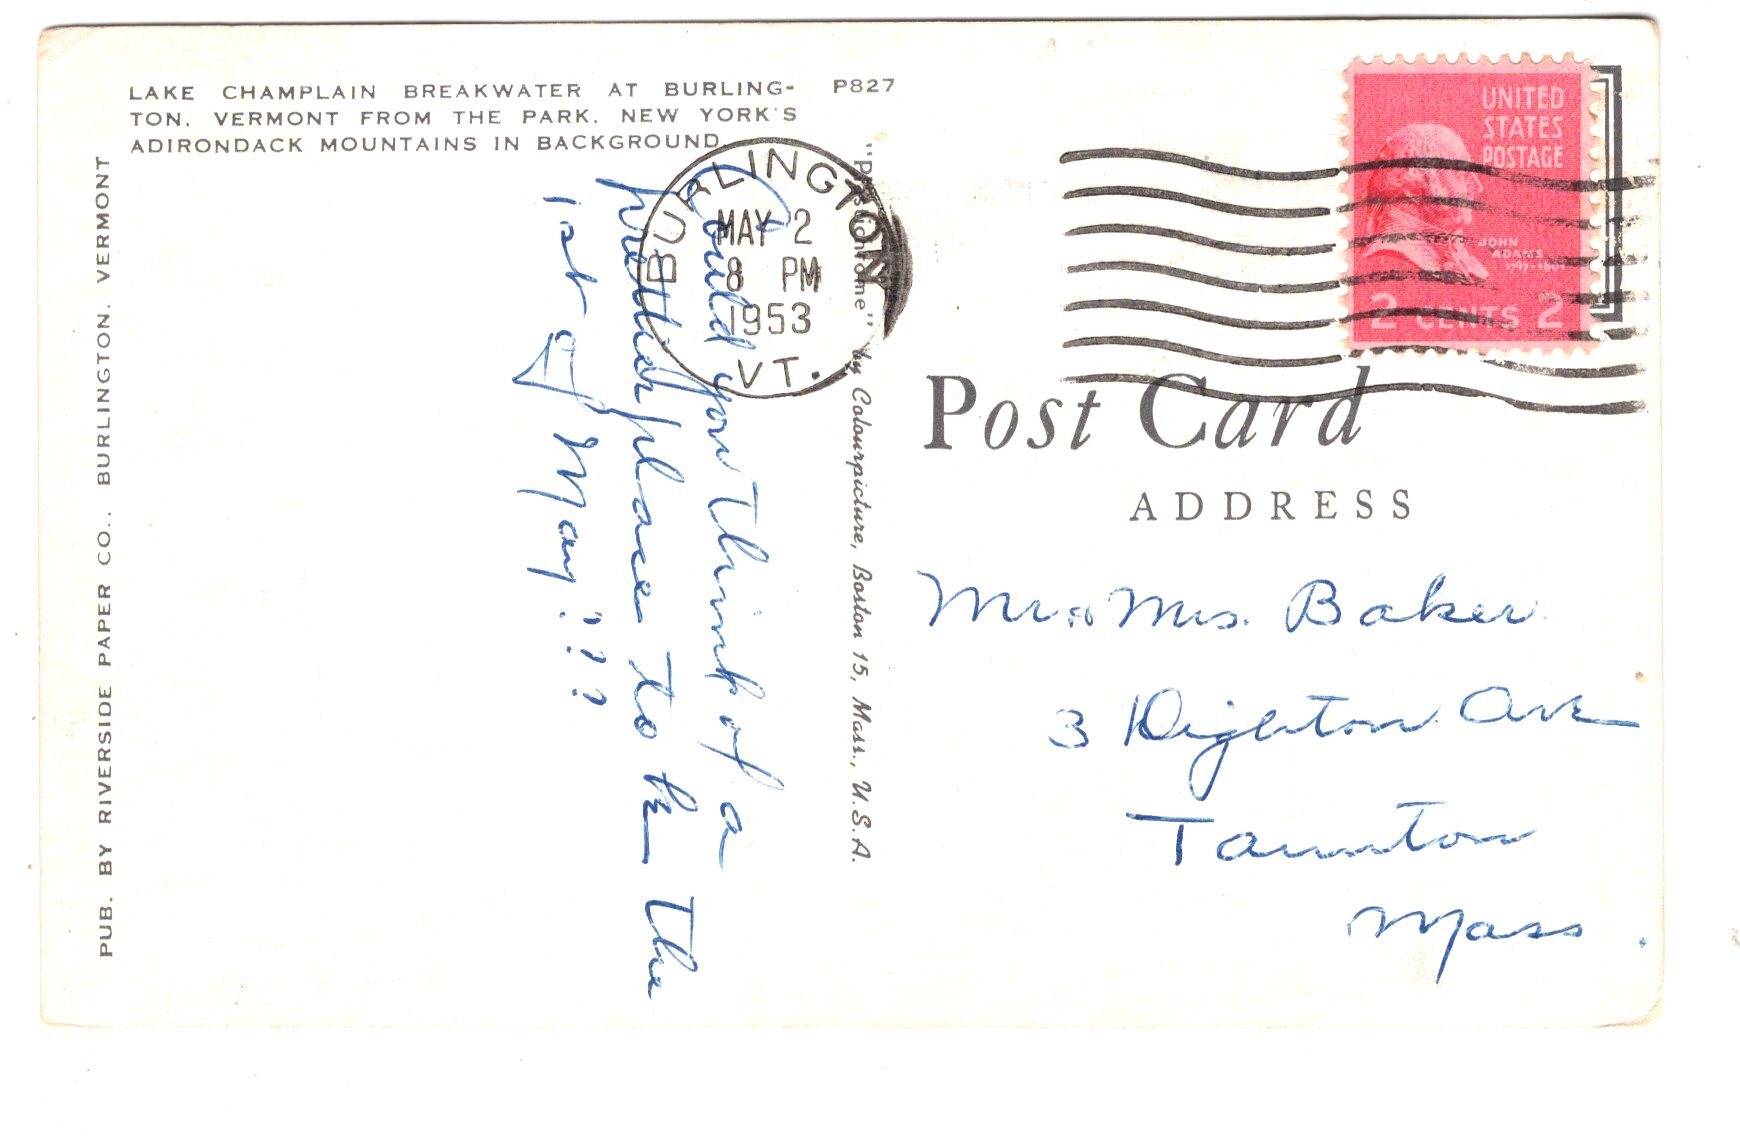 LAKE CHAMPLAIN BREAKWATER AT BURLING- P827
TON, VERMONT FROM THE PARK. NEW YORK'S
ADIRONDACK MOUNTAINS IN BACKGROUND.
PUB. BY RIVERSIDE PAPER CO., BURLINGTON, VERMONT
Could you think of a
prettier place to be the
1st of May???
BURLINGTON
MAY 2
8 PM
1953
VT.
"Plastichrome" by Colourpicture, Boston 15, Mass., U.S.A.
UNITED
STATES
POSTAGE
JOHN
ADAMS
1797-1801
2 CENTS 2
Post Card
ADDRESS
Mr & Mrs. Baker
3 Dighton Ave
Taunton
Mass.